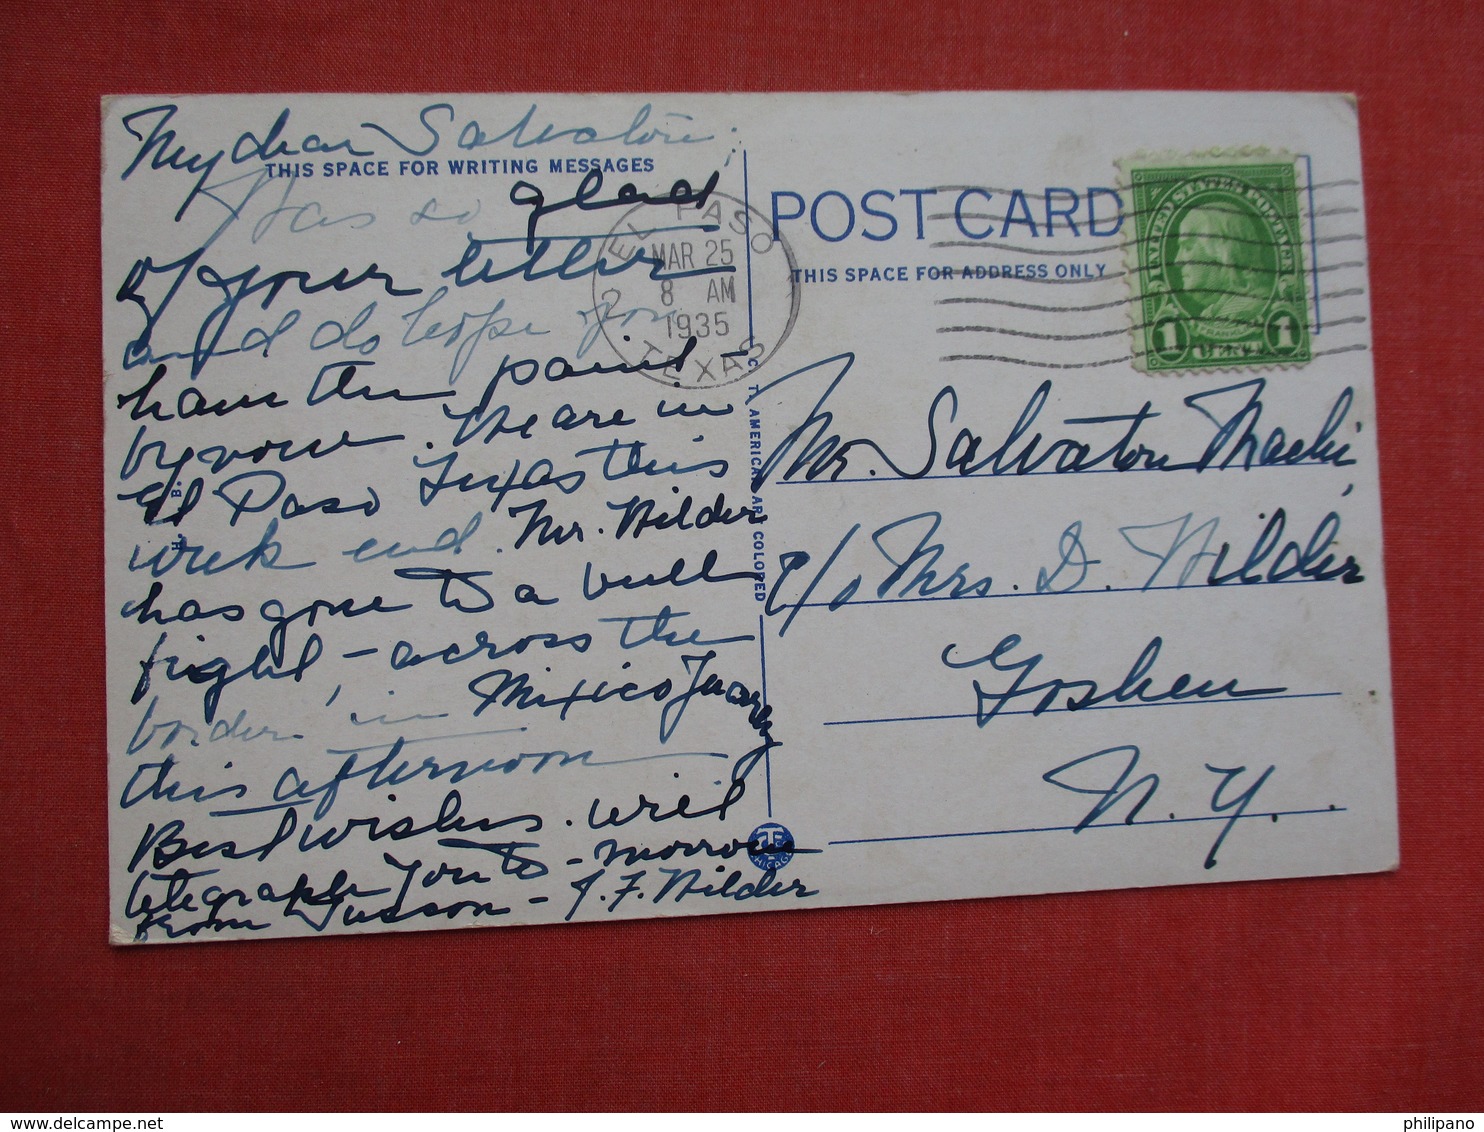 My dear Salvatore;
THIS SPACE FOR WRITING MESSAGES
Was so glad
of your letter
and do hope you
have the paint
by now. We are in
El Paso Texas this
week end. Mr. Wilder
has gone to a bull
fight, - across the
border in Mexico Juarez
this afternoon
Best wishes. will
telegraph you to-morrow
from Tusson - J. F. Wilder
EL PASO
MAR 25
8 AM
1935
TEXAS
2
C. T. AMERICAN ART COLORED
POST CARD
THIS SPACE FOR ADDRESS ONLY
UNITED STATES POSTAGE
FRANKLIN
1 CENT 1
Mr. Salvatore Machi,
c/o Mrs. D. Wilder
Goshen
N. Y.
CHICAGO
philipano